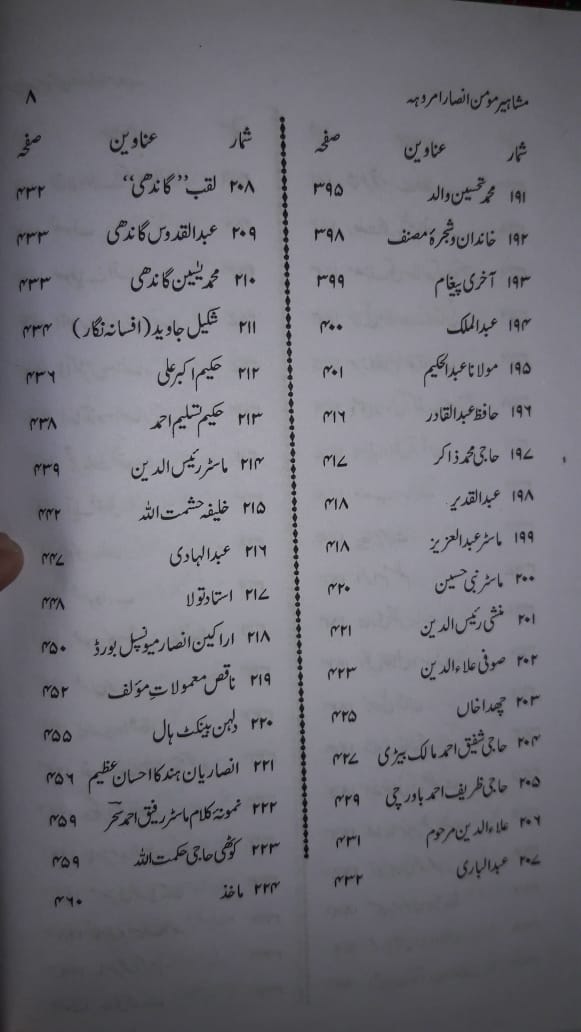 مشاہیر مومن انصار امروہہ
۸
شمار عناوین صفحہ
۱۹۱ محمد تحسین والد ۳۹۵
۱۹۲ خاندان و شجرۂ مصنف ۳۹۸
۱۹۳ آخری پیغام ۳۹۹
۱۹۴ عبدالملک ۴۰۰
۱۹۵ مولانا عبدالحکیم ۴۰۱
۱۹۶ حافظ عبدالقادر ۴۱۶
۱۹۷ حاجی محمد ذاکر ۴۱۷
۱۹۸ عبدالقدیر ۴۱۸
۱۹۹ ماسٹر عبدالعزیز ۴۱۸
۲۰۰ ماسٹر نبی حسین ۴۲۰
۲۰۱ منشی رئیس الدین ۴۲۱
۲۰۲ صوفی علاءالدین ۴۲۳
۲۰۳ چھدا خاں ۴۲۵
۲۰۴ حاجی شفیق احمد مالک بیڑی ۴۲۷
۲۰۵ حاجی ظریف احمد باورچی ۴۲۹
۲۰۶ علاءالدین مرحوم ۴۳۱
۲۰۷ عبدالباری ۴۳۲
شمار عناوین صفحہ
۲۰۸ لقب ”گاندھی“ ۴۳۲
۲۰۹ عبدالقدوس گاندھی ۴۳۳
۲۱۰ محمد یٰسین گاندھی ۴۳۳
۲۱۱ شکیل جاوید (افسانہ نگار) ۴۳۴
۲۱۲ حکیم اکبر علی ۴۳۶
۲۱۳ حکیم تسلیم احمد ۴۳۸
۲۱۴ ماسٹر رئیس الدین ۴۳۹
۲۱۵ خلیفہ حشمت اللہ ۴۴۲
۲۱۶ عبدالہادی ۴۴۷
۲۱۷ استاد تولا ۴۴۸
۲۱۸ اراکین انصار میونسپل بورڈ ۴۵۰
۲۱۹ ناقص معمولاتِ مؤلف ۴۵۲
۲۲۰ دلہن بینکٹ ہال ۴۵۵
۲۲۱ انصاریان ہند کا احسان عظیم ۴۵۶
۲۲۲ نمونۂ کلام ماسٹر رفیق احمد سحر ۴۵۹
۲۲۳ کوٹھی حاجی حکمت اللہ ۴۵۹
۲۲۴ ماخذ ۴۶۰